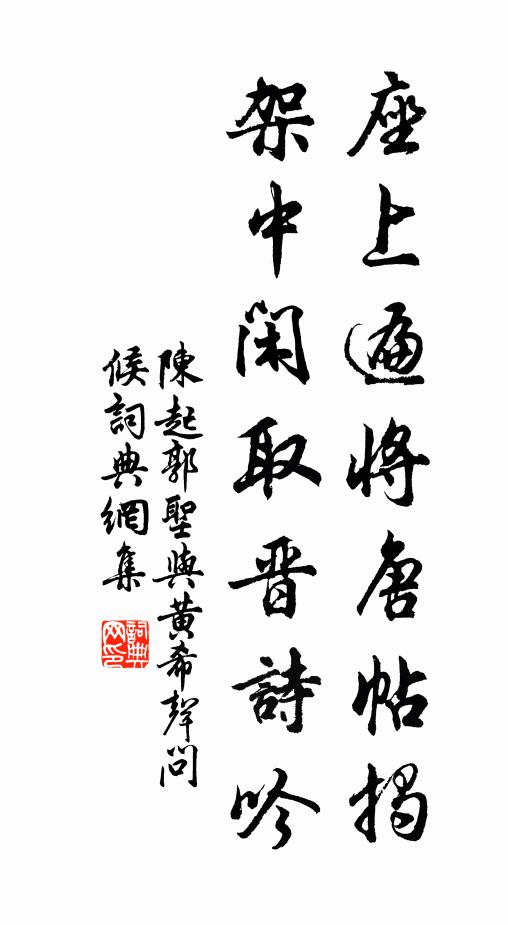 座上遍將唐帖揭
架中閑取晋詩吟
陳起郭聖與黃希聲問
候詞典網集
詞典
网印